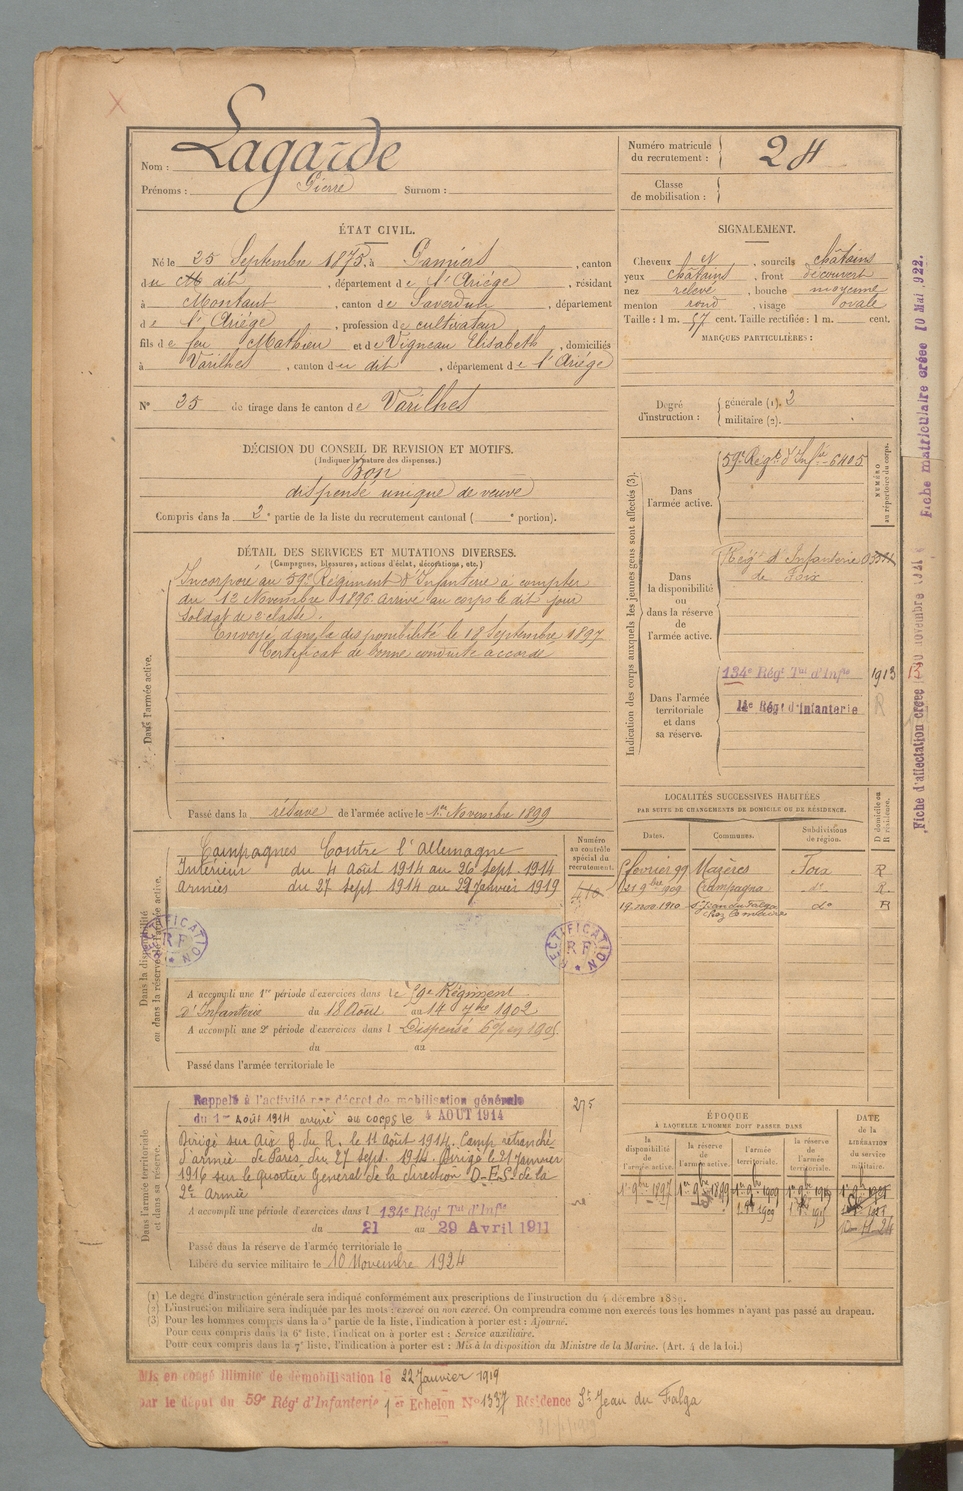 Nom : Lagarde
Prénoms : Pierre Surnom :
Numéro matricule du recrutement : 24
Classe de mobilisation :
ÉTAT CIVIL.
Né le 25 Septembre 1875, à Pamiers, canton
du dit, département de l'Ariége, résidant
à Montaut, canton de Saverdun, département
de l'Ariége, profession de cultivateur
fils de feu Mathieu et de Vigneau Elisabeth, domiciliés
à Varilhes, canton du dit, département de l'Ariége
N° 25 de tirage dans le canton de Varilhes
SIGNALEMENT.
Cheveux et, sourcils châtains
yeux châtains, front découvert
nez relevé, bouche moyenne
menton rond, visage ovale
Taille : 1 m. 57 cent. Taille rectifiée : 1 m. cent.
MARQUES PARTICULIÈRES :
Degré d'instruction : générale (1). 2
militaire (2).
DÉCISION DU CONSEIL DE REVISION ET MOTIFS.
(Indiquer la nature des dispenses.)
Bon
dispensé unique de veuve
Compris dans la 2e partie de la liste du recrutement cantonal ( e portion).
DÉTAIL DES SERVICES ET MUTATIONS DIVERSES.
(Campagnes, blessures, actions d'éclat, décorations, etc.)
Dans l'armée active.
Incorporé au 59e Régiment d'Infanterie à compter
du 12 Novembre 1896. Arrivé au corps le dit jour
Soldat de 2e classe.
Envoyé dans la disponibilité le 18 Septembre 1897
Certificat de bonne conduite accordé
Passé dans la réserve de l'armée active le 1er Novembre 1899
Indication des corps auxquels les jeunes gens sont affectés (3).
NUMÉRO au répertoire du corps.
Dans l'armée active.
59e Régt d'Infie 6405
Dans la disponibilité ou dans la réserve de l'armée active.
Régt d'Infanterie
de Foix
Dans l'armée territoriale et dans sa réserve.
134e Régt Tal d'Infie 1913
14e Régt d'Infanterie R
LOCALITÉS SUCCESSIVES HABITÉES
PAR SUITE DE CHANGEMENTS DE DOMICILE OU DE RÉSIDENCE.
Dates. Communes. Subdivisions de région. D domicile ou R résidence.
5 février 99 Mazères Foix R
21 9bre 909 Crampagna do R
19 nov. 1910 St Jean du Falga do R
Dans la disponibilité ou dans la réserve de l'armée active.
Numéro au contrôle spécial du recrutement.
Campagnes Contre l'Allemagne
Intérieur du 4 Août 1914 au 26 Sept. 1914
Armées du 27 Sept 1914 au 21 Janvier 1919
RECTIFICATION RF
RECTIFICATION RF
A accompli une 1re période d'exercices dans le 59e Régiment
d'Infanterie du 18 Août au 14 7bre 1902
A accompli une 2e période d'exercices dans l Dispensé
du au
Passé dans l'armée territoriale le
Dans l'armée territoriale et dans sa réserve.
Rappelé à l'activité par décret de mobilisation générale
du 1er Août 1914 arrivé au corps le 4 AOUT 1914
Dirigé sur Aix B. du R. le 11 Août 1914. Camp retranché
d'armée de Paris du 27 sept. 1914. Dirigé le 21 Janvier
1916 sur le Quartier Général de la direction D-E.S. de la
2e Armée
A accompli une période d'exercices dans l 134e Régt Tal d'Infie
du 21 au 29 Avril 1911
Passé dans la réserve de l'armée territoriale le
Libéré du service militaire le 10 Novembre 1924
275
ÉPOQUE
À LAQUELLE L'HOMME DOIT PASSER DANS
la disponibilité de l'armée active. la réserve de l'armée active. l'armée territoriale. la réserve de l'armée territoriale. DATE de la LIBÉRATION du service militaire.
1er 9bre 1897 1er 9bre 1899 1er 9bre 1909
10-11-24
(1) Le degré d'instruction générale sera indiqué conformément aux prescriptions de l'instruction du 4 décembre 1889.
(2) L'instruction militaire sera indiquée par les mots : exercé ou non exercé. On comprendra comme non exercés tous les hommes n'ayant pas passé au drapeau.
(3) Pour les hommes compris dans la 5e partie de la liste, l'indication à porter est : Ajourné.
Pour ceux compris dans la 6e liste, l'indication à porter est : Service auxiliaire.
Pour ceux compris dans la 7e liste, l'indication à porter est : Mis à la disposition du Ministre de la Marine. (Art. 4 de la loi.)
Mis en congé illimité de démobilisation le 22 Janvier 1919
par le dépôt du 59e Régt d'Infanterie 1er Echelon No 1337 Résidence St Jean du Falga
Fiche matriculaire créée 10 Mai 1922.
Fiche d'affectation créée